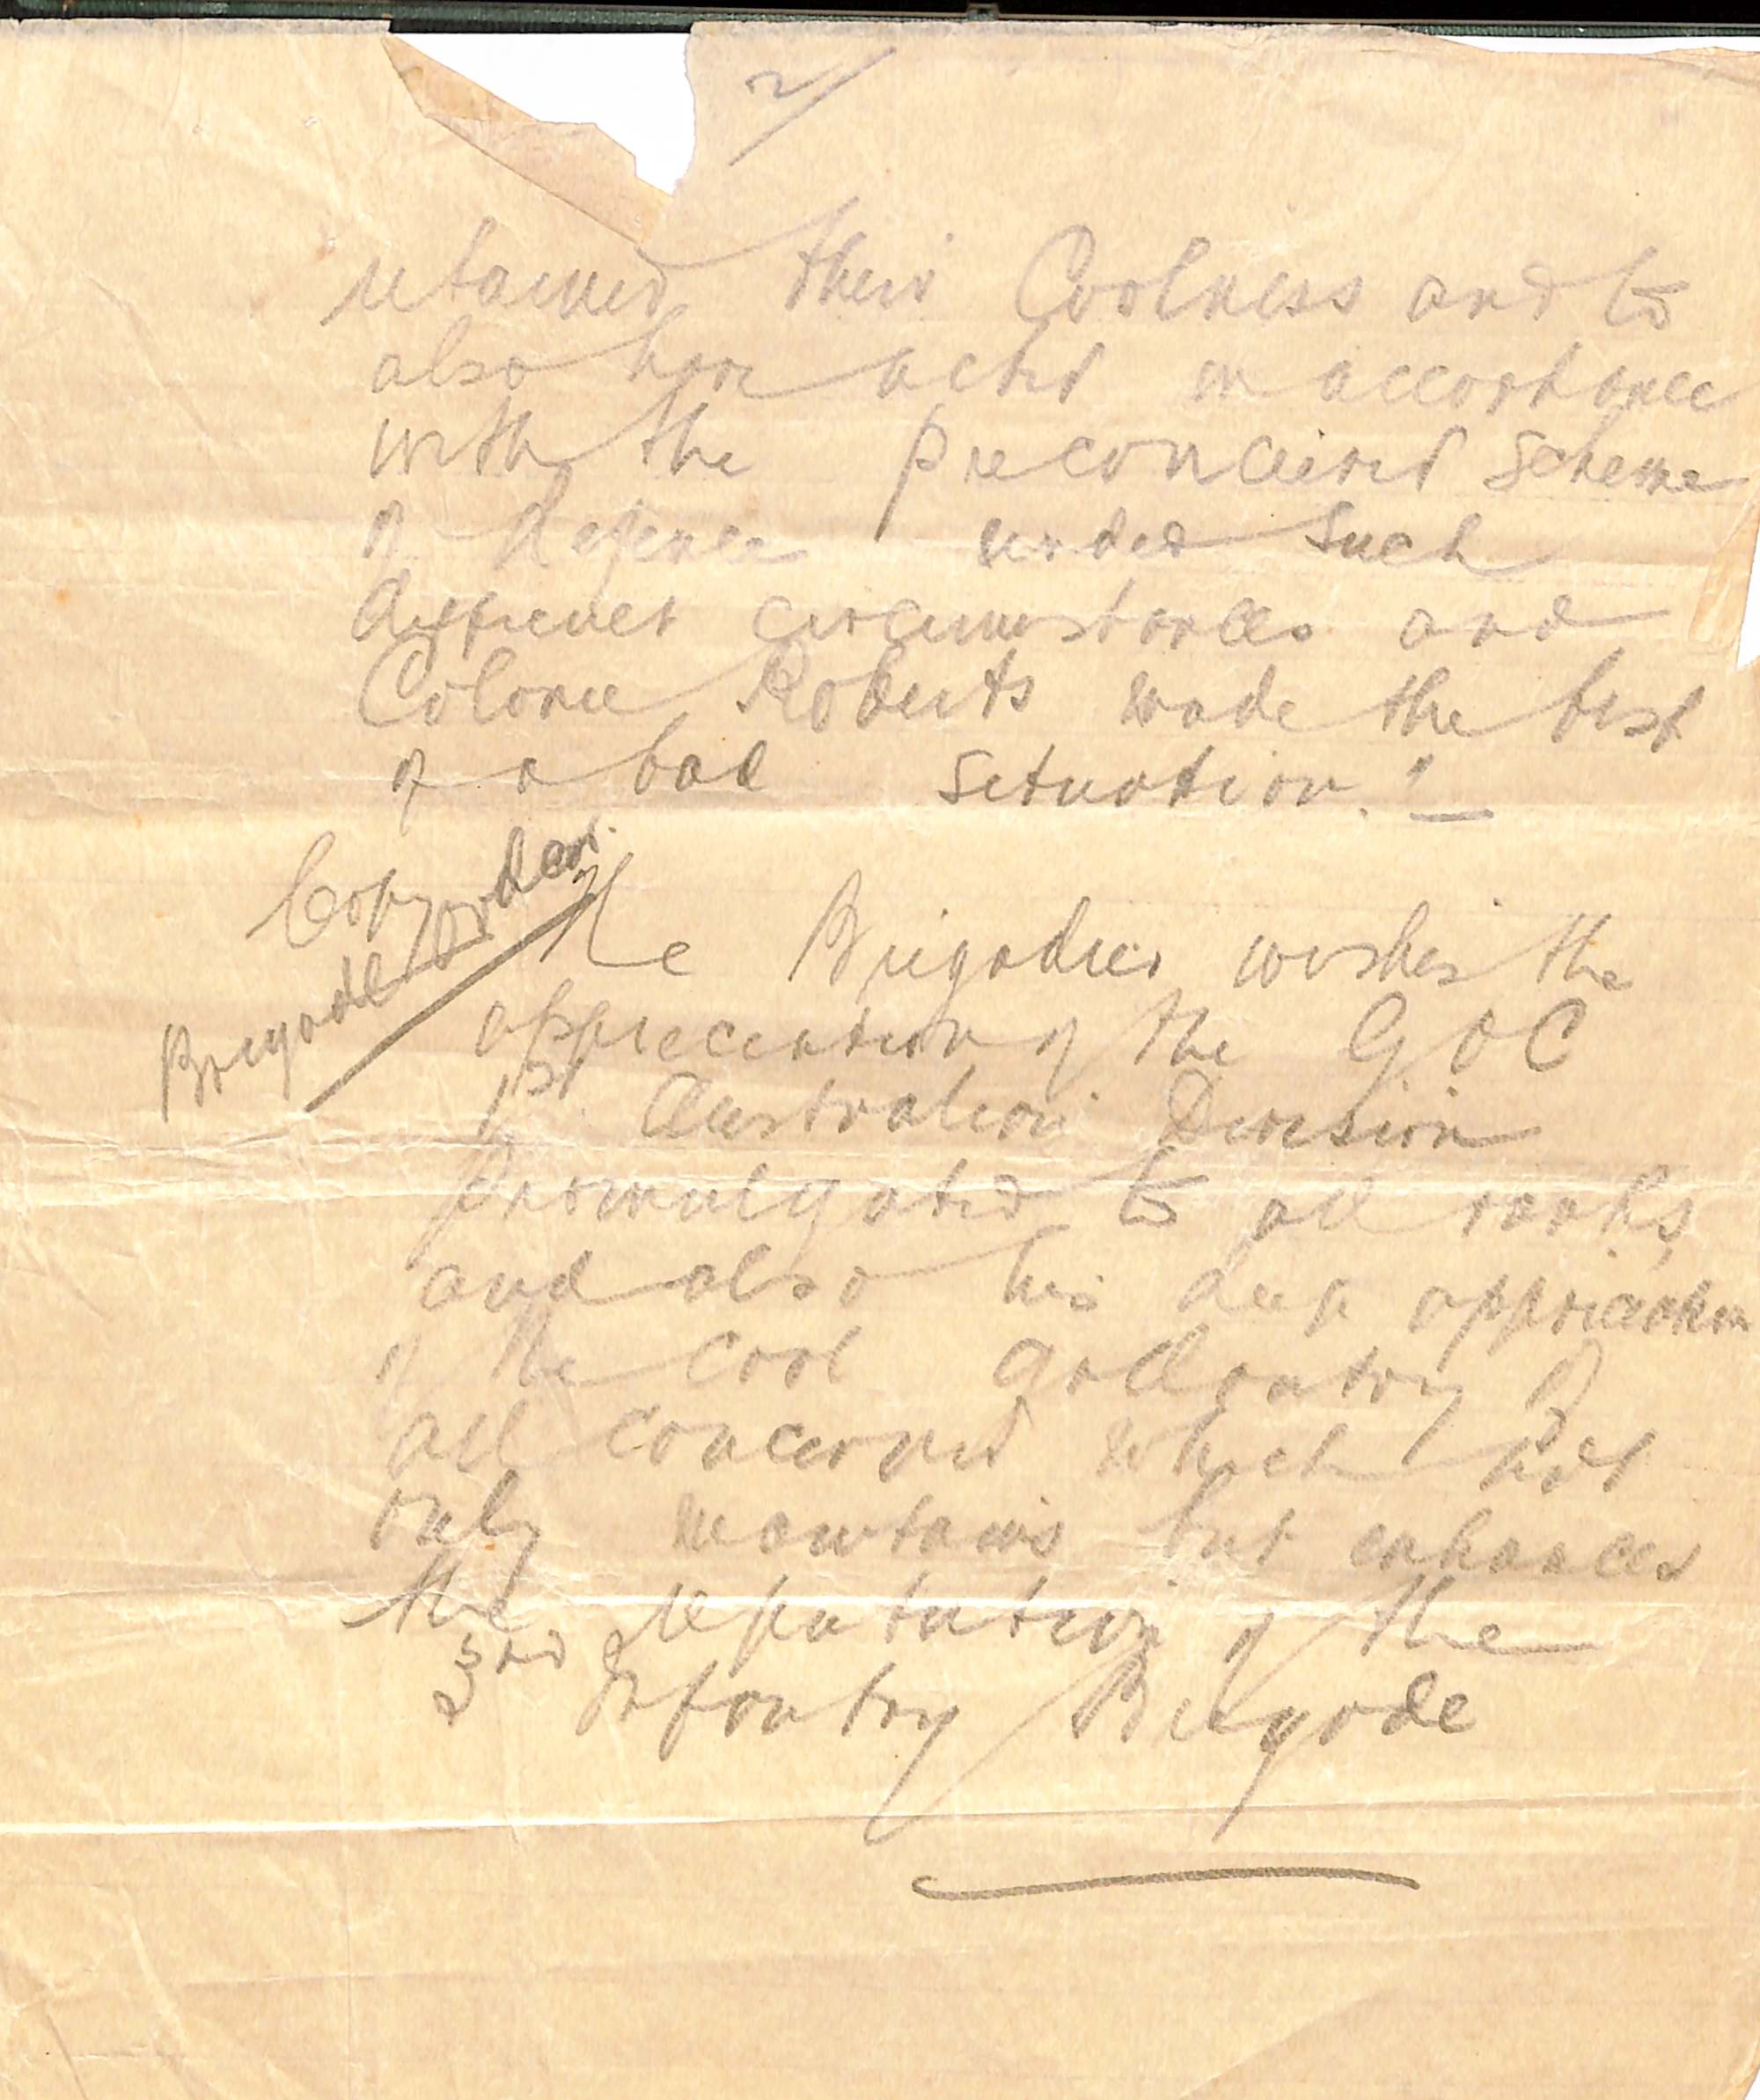 2/
retained their Coolness and to
also have acted in accordance
with the preconceived scheme
of defence under such
difficult circumstances and
Colonel Roberts made the best
of a bad situation."
Copy
Brigade Order.
The Brigadier wishes the
appreciation of the G.O.C
1st Australian Division
promulgated to all ranks,
and also his deep appreciation
of the cool gallantry of
all concerned which not
only maintains but enhances
the reputation of the
3rd Infantry Brigade